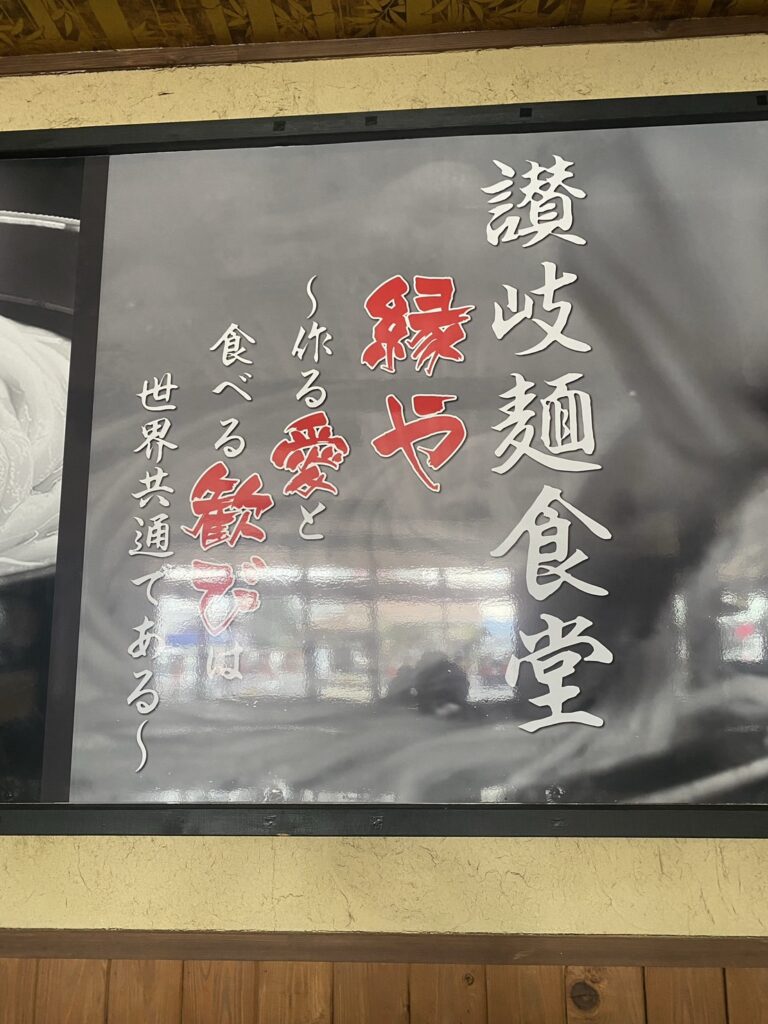 讃岐麺食堂
縁や
～作る愛と
食べる歓びは
世界共通である～